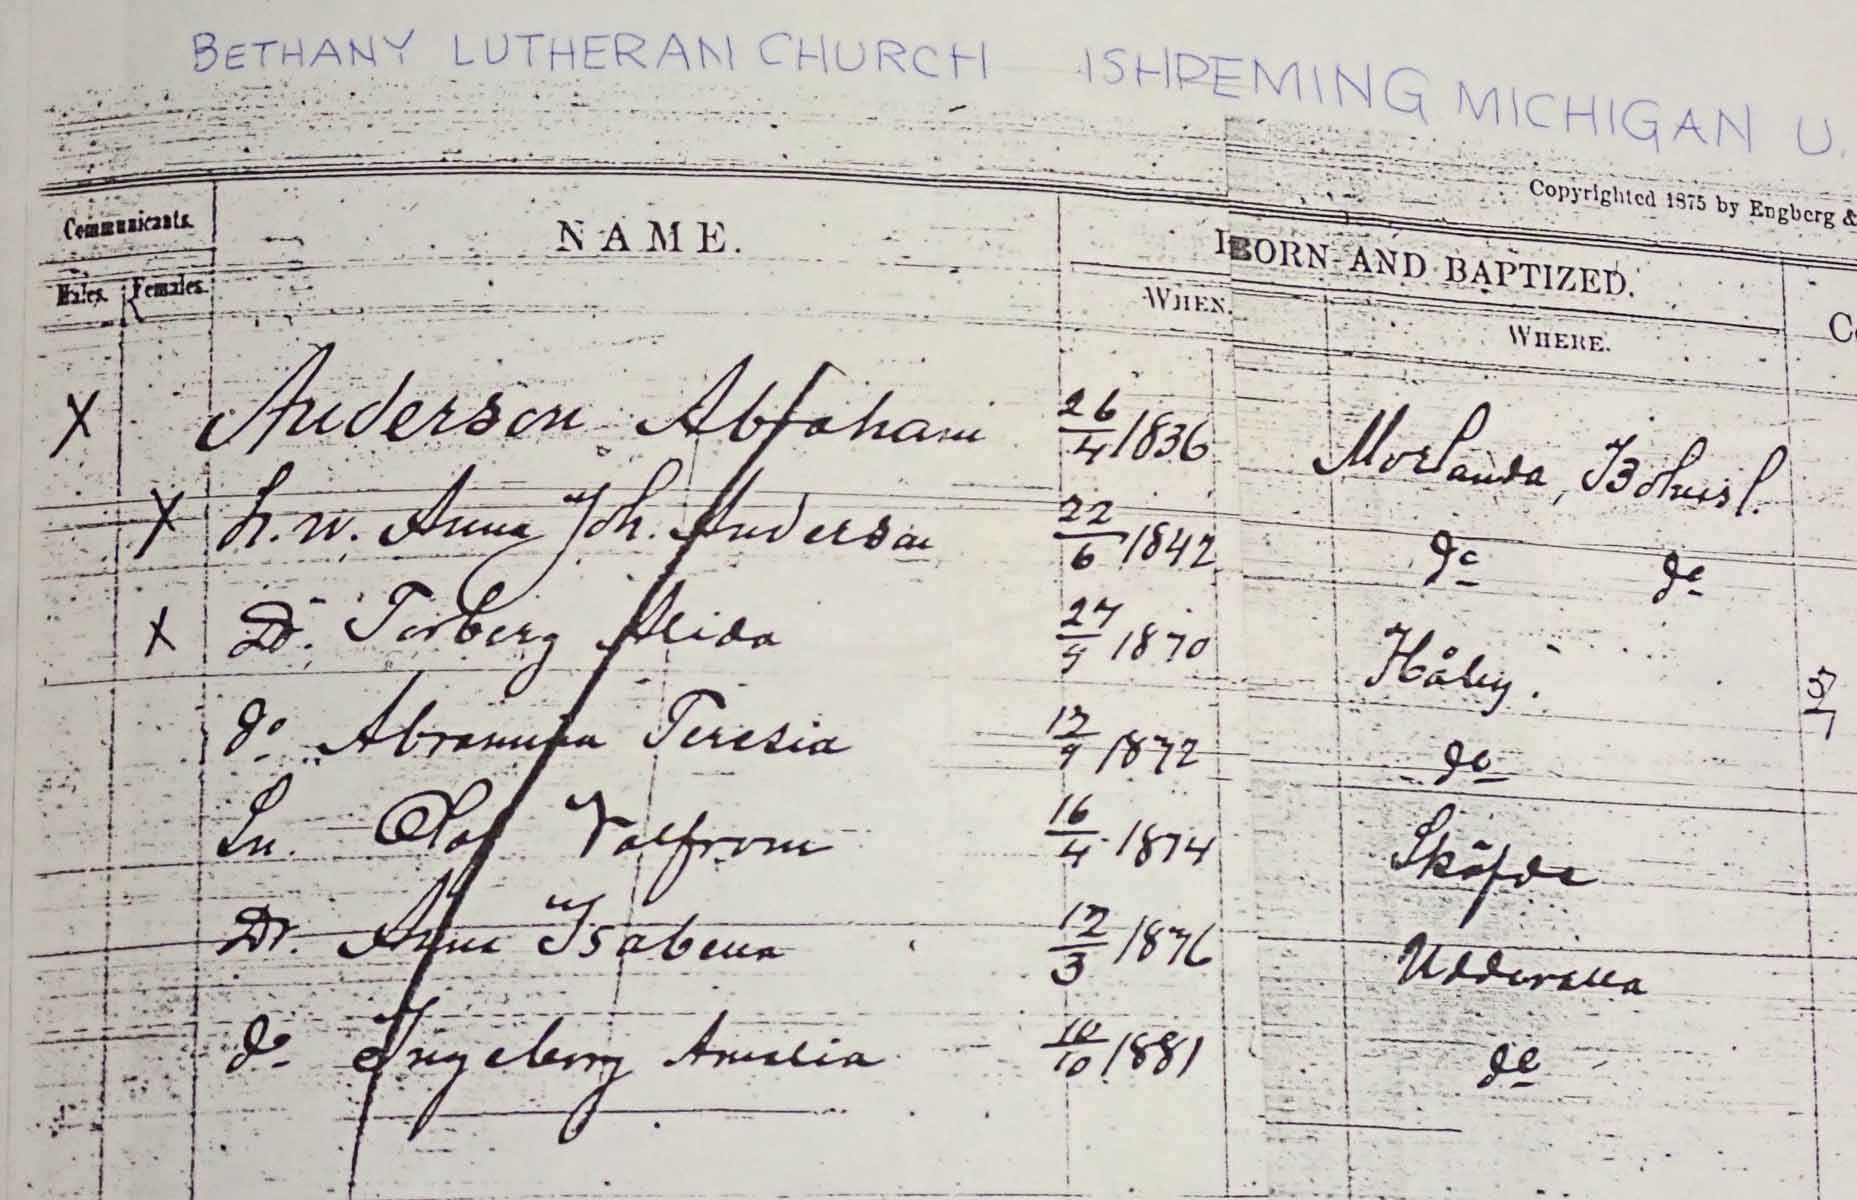 BETHANY LUTHERAN CHURCH ISHPEMING MICHIGAN U.
Copyrighted 1875 by Engberg &
Communicants. NAME. BORN AND BAPTIZED.
Males. Females. WHEN. WHERE. Co
X Anderson Abraham 26/4 1836 Morlanda, Bohusl.
X h.w. Anna Joh. Anderson 22/6 1842 do do
X Dr. Torberg Alida 27/9 1870 Håby. 5/7
do Abramina Teresia 12/9 1872 do
Sn. Olof Valfrom 16/4 1874 Sköfde
Dr. Anna Isabella 12/3 1876 Uddevalla
do Ingeborg Amalia 10/10 1881 do